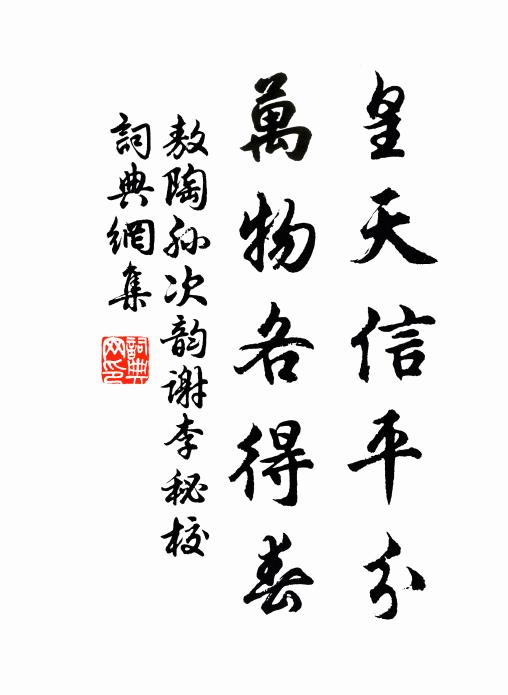 皇天信平分
萬物各得春
敖陶孫次韵謝李秘校
詞典網集
詞典网印